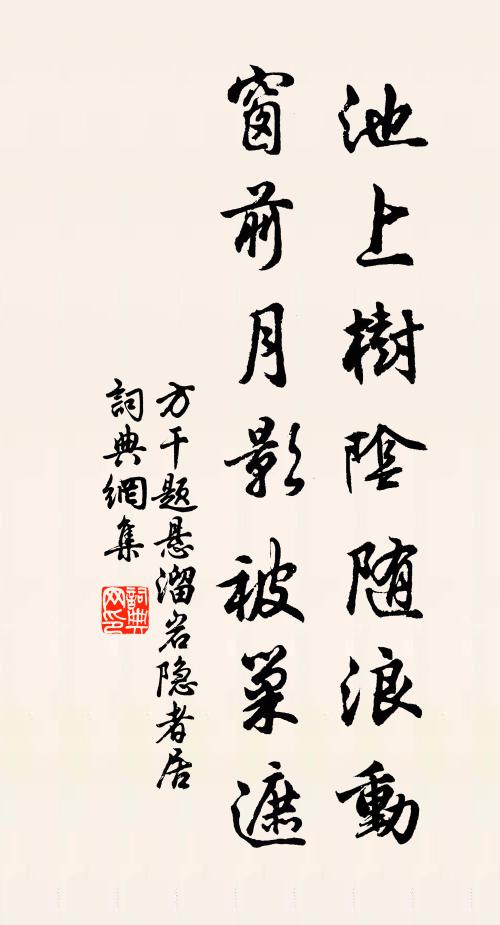 池上樹陰随浪動
窗前月影被巢遮
方干题悬溜岩隐者居
詞典網集
詞典網印